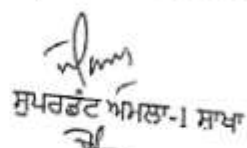 ਸੁਪਰਡੰਟ ਅਮਲਾ-1 ਸ਼ਾਖਾ